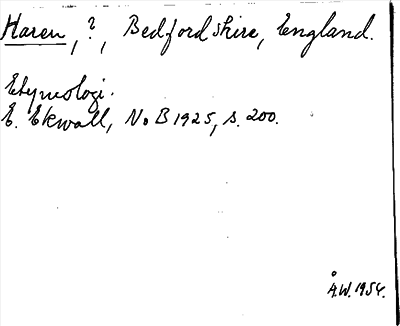 Haren, ?, Bedfordshire, England.
Etymologi.
E. Ekwall, NoB 1925, s. 200.
Å.W. 1954.